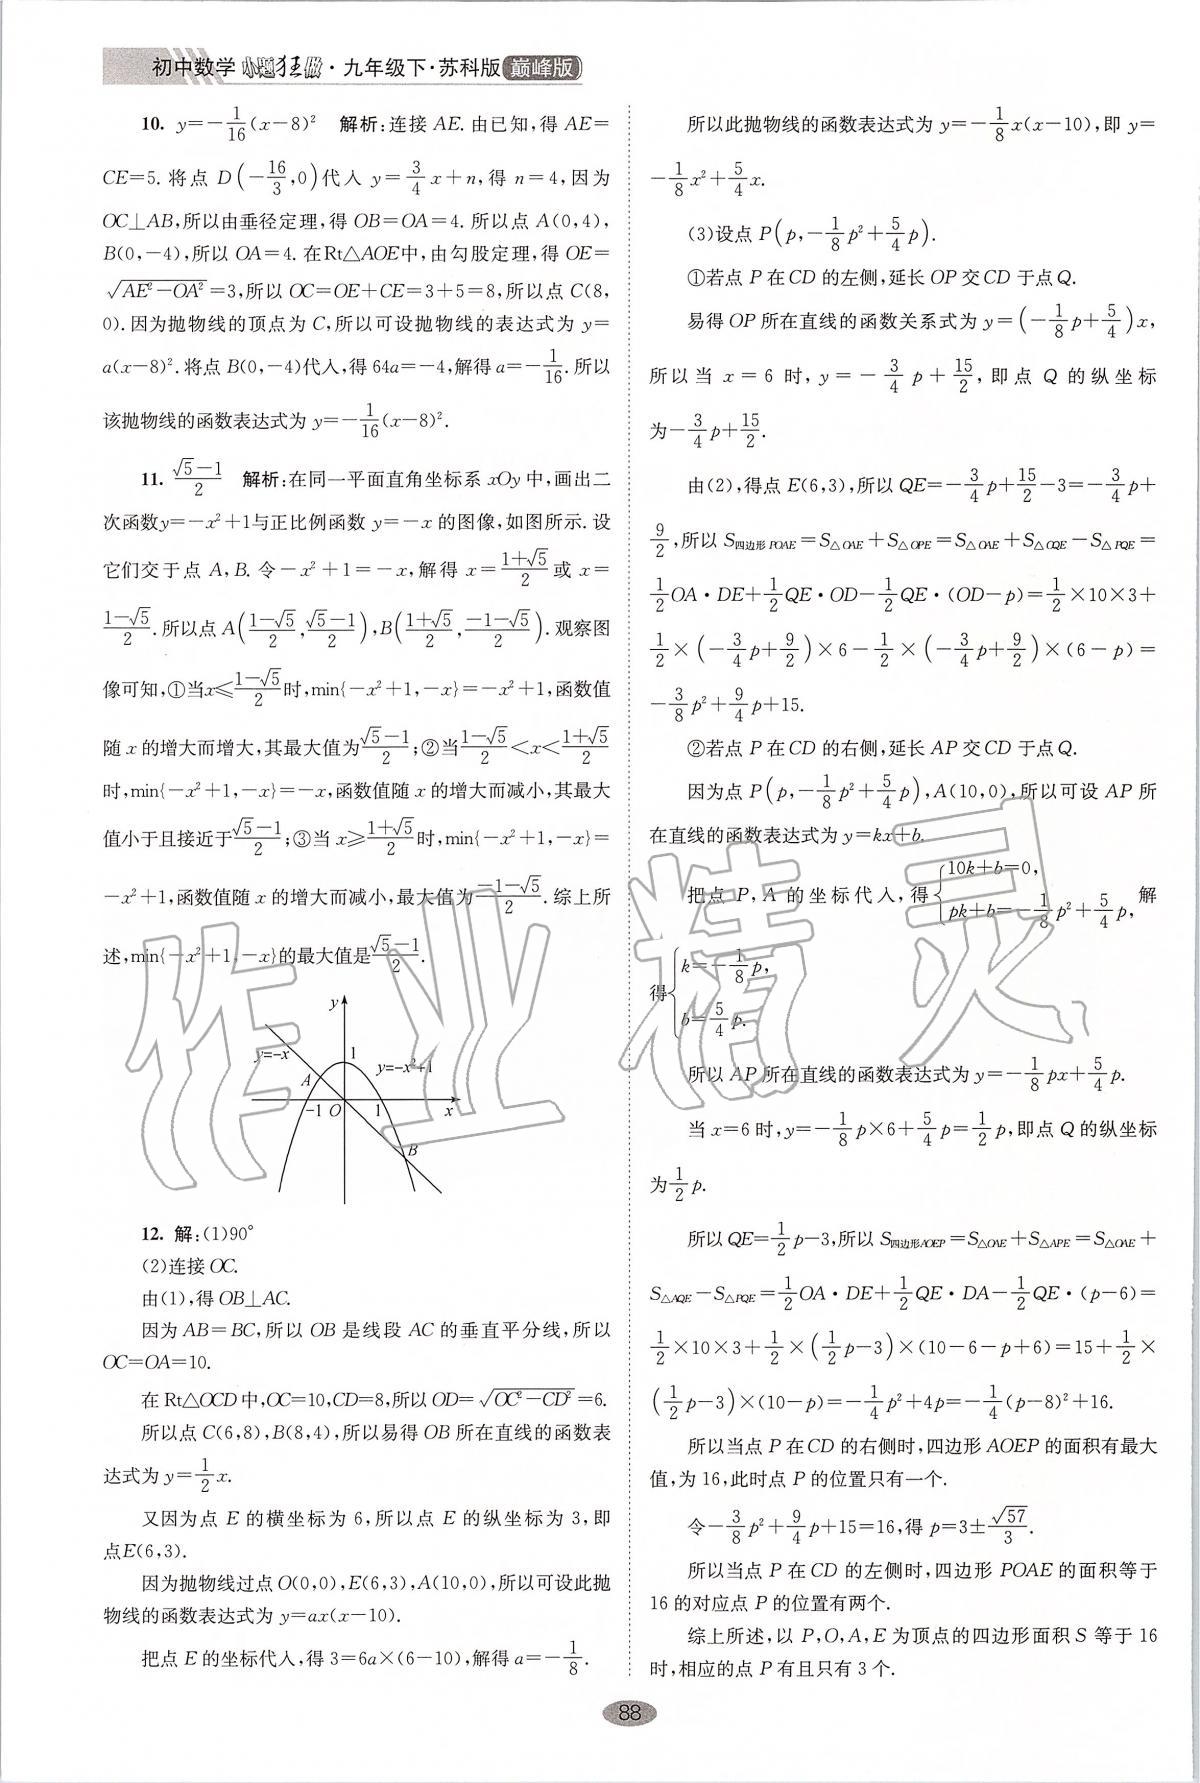 初中数学 小题狂做·九年级下·苏科版 巅峰版
10. y=-1/16(x-8)² 解析:连接 AE. 由已知,得 AE=
CE=5. 将点 D(-16/3,0)代入 y=3/4x+n,得 n=4,因为
OC⊥AB,所以由垂径定理,得 OB=OA=4. 所以点 A(0,4),
B(0,-4),所以 OA=4. 在Rt△AOE中,由勾股定理,得 OE=
√(AE²-OA²)=3,所以 OC=OE+CE=3+5=8,所以点 C(8,
0). 因为抛物线的顶点为 C,所以可设抛物线的表达式为 y=
a(x-8)². 将点 B(0,-4)代入,得 64a=-4,解得 a=-1/16. 所以
该抛物线的函数表达式为 y=-1/16(x-8)².
11. (√5-1)/2 解析:在同一平面直角坐标系 xOy 中,画出二
次函数y=-x²+1与正比例函数 y=-x 的图像,如图所示. 设
它们交于点 A,B. 令-x²+1=-x,解得 x=(1+√5)/2 或 x=
(1-√5)/2. 所以点 A((1-√5)/2,(√5-1)/2),B((1+√5)/2,(-1-√5)/2). 观察图
像可知,①当x≤(1-√5)/2时,min{-x²+1,-x}=-x²+1,函数值
随 x 的增大而增大,其最大值为(√5-1)/2;②当(1-√5)/2<x<(1+√5)/2
时,min{-x²+1,-x}=-x,函数值随 x 的增大而减小,其最大
值小于且接近于(√5-1)/2;③当 x≥(1+√5)/2时,min{-x²+1,-x}=
-x²+1,函数值随 x 的增大而减小,最大值为(-1-√5)/2. 综上所
述,min{-x²+1,-x}的最大值是(√5-1)/2.
y
y=-x
1
y=-x²+1
A
-1 O 1 x
B
12. 解:(1)90°
(2)连接 OC.
由(1),得 OB⊥AC.
因为 AB=BC,所以 OB 是线段 AC 的垂直平分线,所以
OC=OA=10.
在 Rt△OCD 中,OC=10,CD=8,所以 OD=√(OC²-CD²)=6.
所以点 C(6,8),B(8,4),所以易得 OB 所在直线的函数表
达式为 y=1/2x.
又因为点 E 的横坐标为 6,所以点 E 的纵坐标为 3,即
点E(6,3).
因为抛物线过点O(0,0),E(6,3),A(10,0),所以可设此抛
物线的函数表达式为 y=ax(x-10).
把点 E 的坐标代入,得 3=6a×(6-10),解得 a=-1/8.
所以此抛物线的函数表达式为 y=-1/8x(x-10),即 y=
-1/8x²+5/4x.
(3)设点 P(p,-1/8p²+5/4p).
①若点 P 在 CD 的左侧,延长 OP 交 CD 于点Q.
易得 OP 所在直线的函数关系式为 y=(-1/8p+5/4)x,
所以当 x=6 时,y=-3/4p+15/2,即点 Q 的纵坐标
为-3/4p+15/2.
由(2),得点 E(6,3),所以 QE=-3/4p+15/2-3=-3/4p+
9/2,所以 S四边形POAE=S△OAE+S△OPE=S△OAE+S△OQE-S△PQE=
1/2OA·DE+1/2QE·OD-1/2QE·(OD-p)=1/2×10×3+
1/2×(-3/4p+9/2)×6-1/2×(-3/4p+9/2)×(6-p)=
-3/8p²+9/4p+15.
②若点 P 在CD 的右侧,延长 AP 交 CD 于点Q.
因为点 P(p,-1/8p²+5/4p),A(10,0),所以可设 AP 所
在直线的函数表达式为 y=kx+b.
把点 P,A 的坐标代入,得{10k+b=0, pk+b=-1/8p²+5/4p, 解
得{k=-1/8p, b=5/4p.
所以 AP 所在直线的函数表达式为 y=-1/8px+5/4p.
当 x=6 时,y=-1/8p×6+5/4p=1/2p,即点 Q 的纵坐标
为1/2p.
所以 QE=1/2p-3,所以 S四边形AOEP=S△OAE+S△APE=S△OAE+
S△AQE-S△PQE=1/2OA·DE+1/2QE·DA-1/2QE·(p-6)=
1/2×10×3+1/2×(1/2p-3)×(10-6-p+6)=15+1/2×
(1/2p-3)×(10-p)=-1/4p²+4p=-1/4(p-8)²+16.
所以当点 P 在CD 的右侧时,四边形 AOEP 的面积有最大
值,为 16,此时点 P 的位置只有一个.
令-3/8p²+9/4p+15=16,得 p=3±√57/3.
所以当点 P 在 CD 的左侧时,四边形 POAE 的面积等于
16 的对应点 P 的位置有两个.
综上所述,以 P,O,A,E 为顶点的四边形面积 S 等于 16
时,相应的点 P 有且只有 3 个.
88
作业精灵